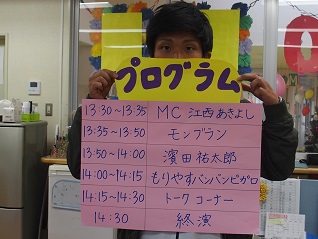 プログラム
13:30～13:35 MC 江西あきよし
13:35～13:50 モンブラン
13:50～14:00 濱田祐太郎
14:00～14:15 もりやすバンバンビガロ
14:15～14:30 トークコーナー
14:30 終演